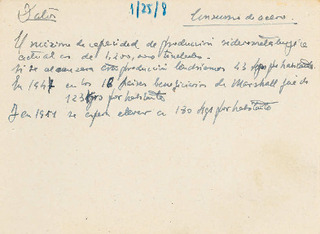 Datos
1/25/8
Consumo de acero.
El máximo de capacidad de producción siderometalúrgica
actual es de 1,200,000 toneladas.
Si se alcanzara esta producción tendríamos 43 kgs por habitante
En 1947 en los 16 países beneficiarios de Marshall fué de
123 kgs por habitante
Y en 1951 se espera elevar a 180 kgs por habitante